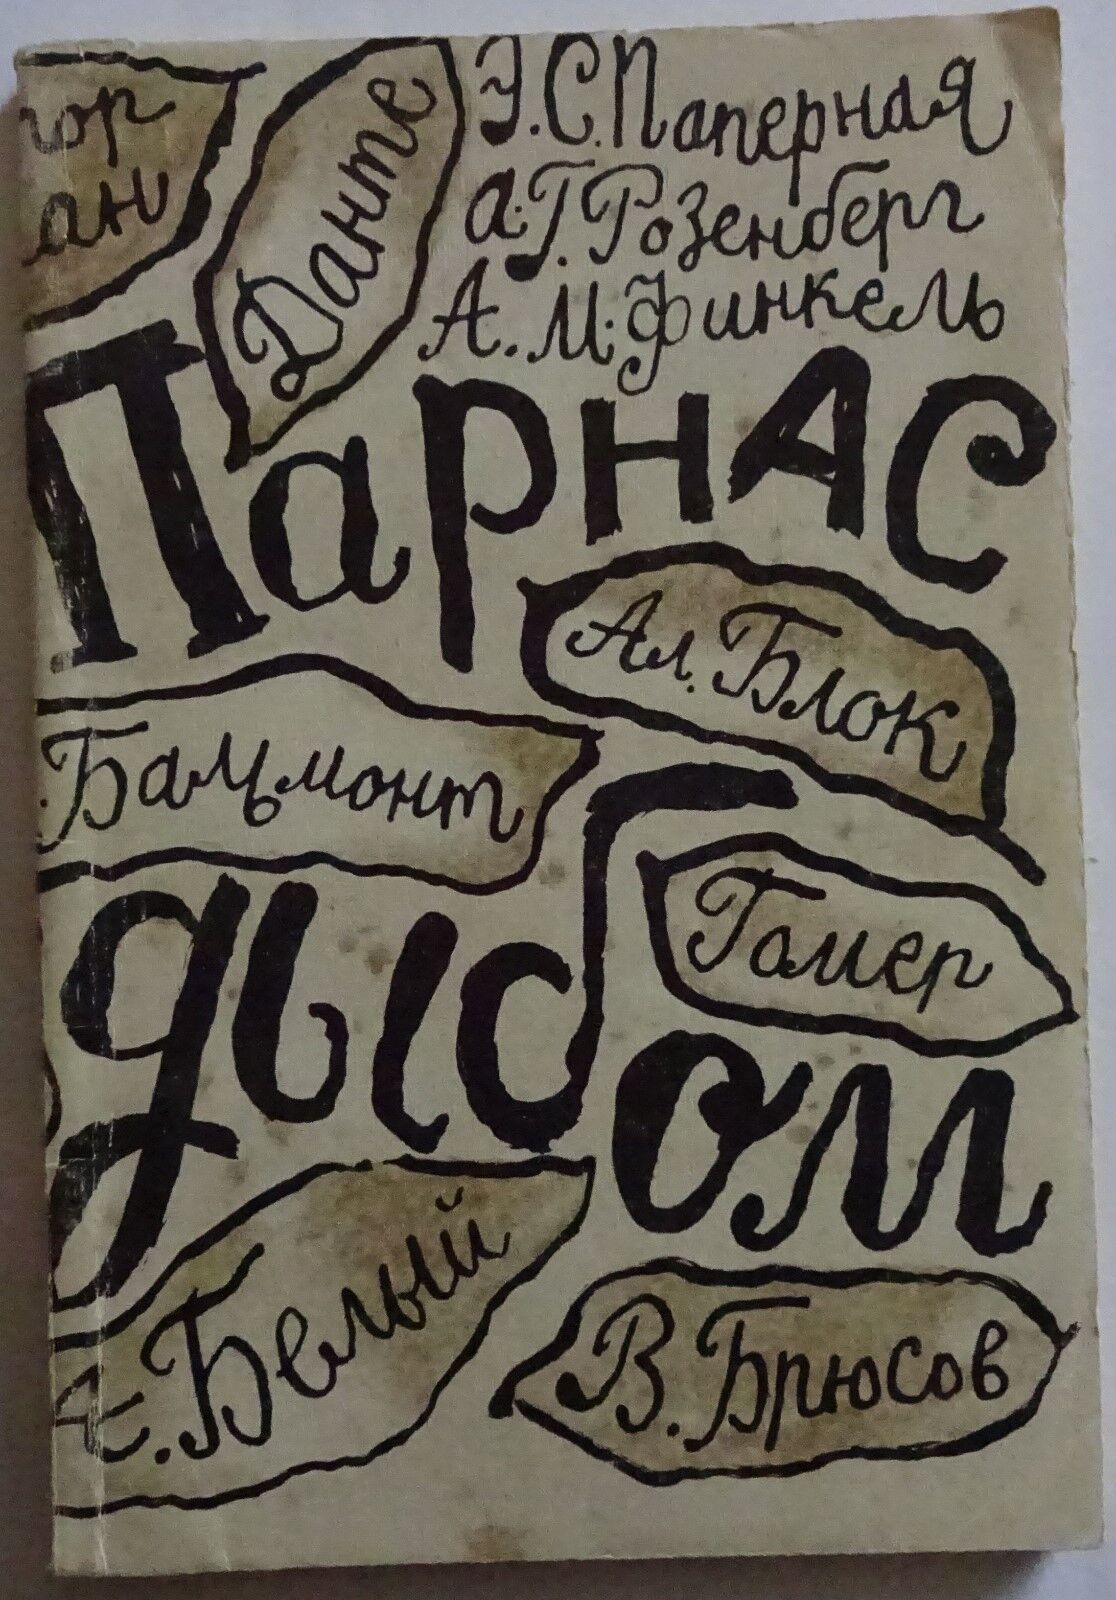 Э.С.Паперная
А.Г.Розенберг
А.М.Финкель
Данте
Парнас
Ал.Блок
.Бальмонт
дыбом
Гомер
.Белый
В.Брюсов